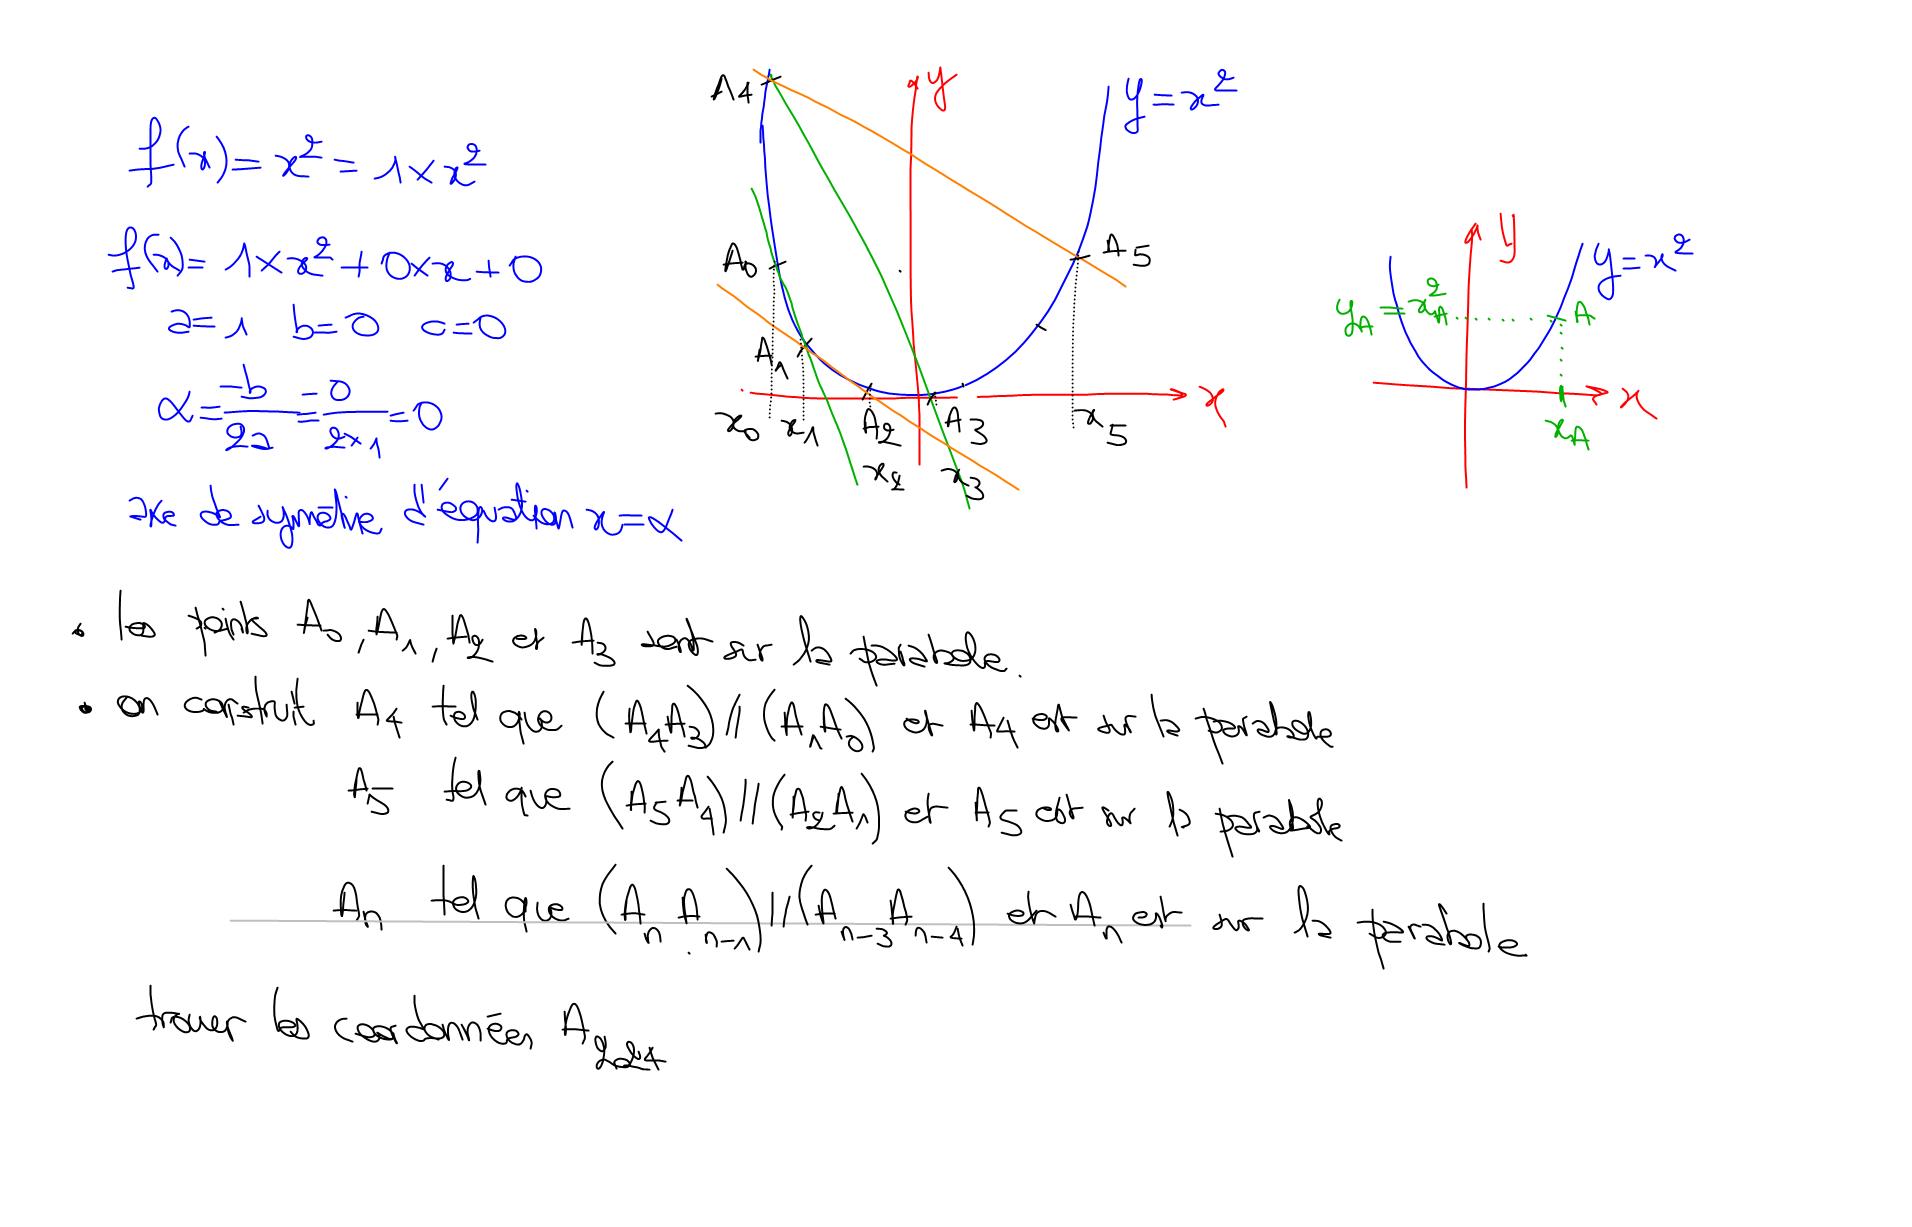 f(x) = x² = 1 × x²
f(x) = 1 × x² + 0 × x + 0
a = 1 b = 0 c = 0
α = -b/2a = -0/2×1 = 0
axe de symétrie d'équation x = α
A₄
y
y = x²
A₀
A₅
A₁
x₀
x₁
A₂
x₂
A₃
x₃
x₅
x
y
y = x²
y_A = x_A²
A
x
x_A
• les points A₀, A₁, A₂ et A₃ sont sur la parabole.
• on construit A₄ tel que (A₄A₃) // (A₁A₀) et A₄ est sur la parabole
A₅ tel que (A₅A₄) // (A₂A₁) et A₅ est sur la parabole
Aₙ tel que (Aₙ Aₙ₋₁) // (Aₙ₋₃ Aₙ₋₄) et Aₙ est sur la parabole
trouver les coordonnées